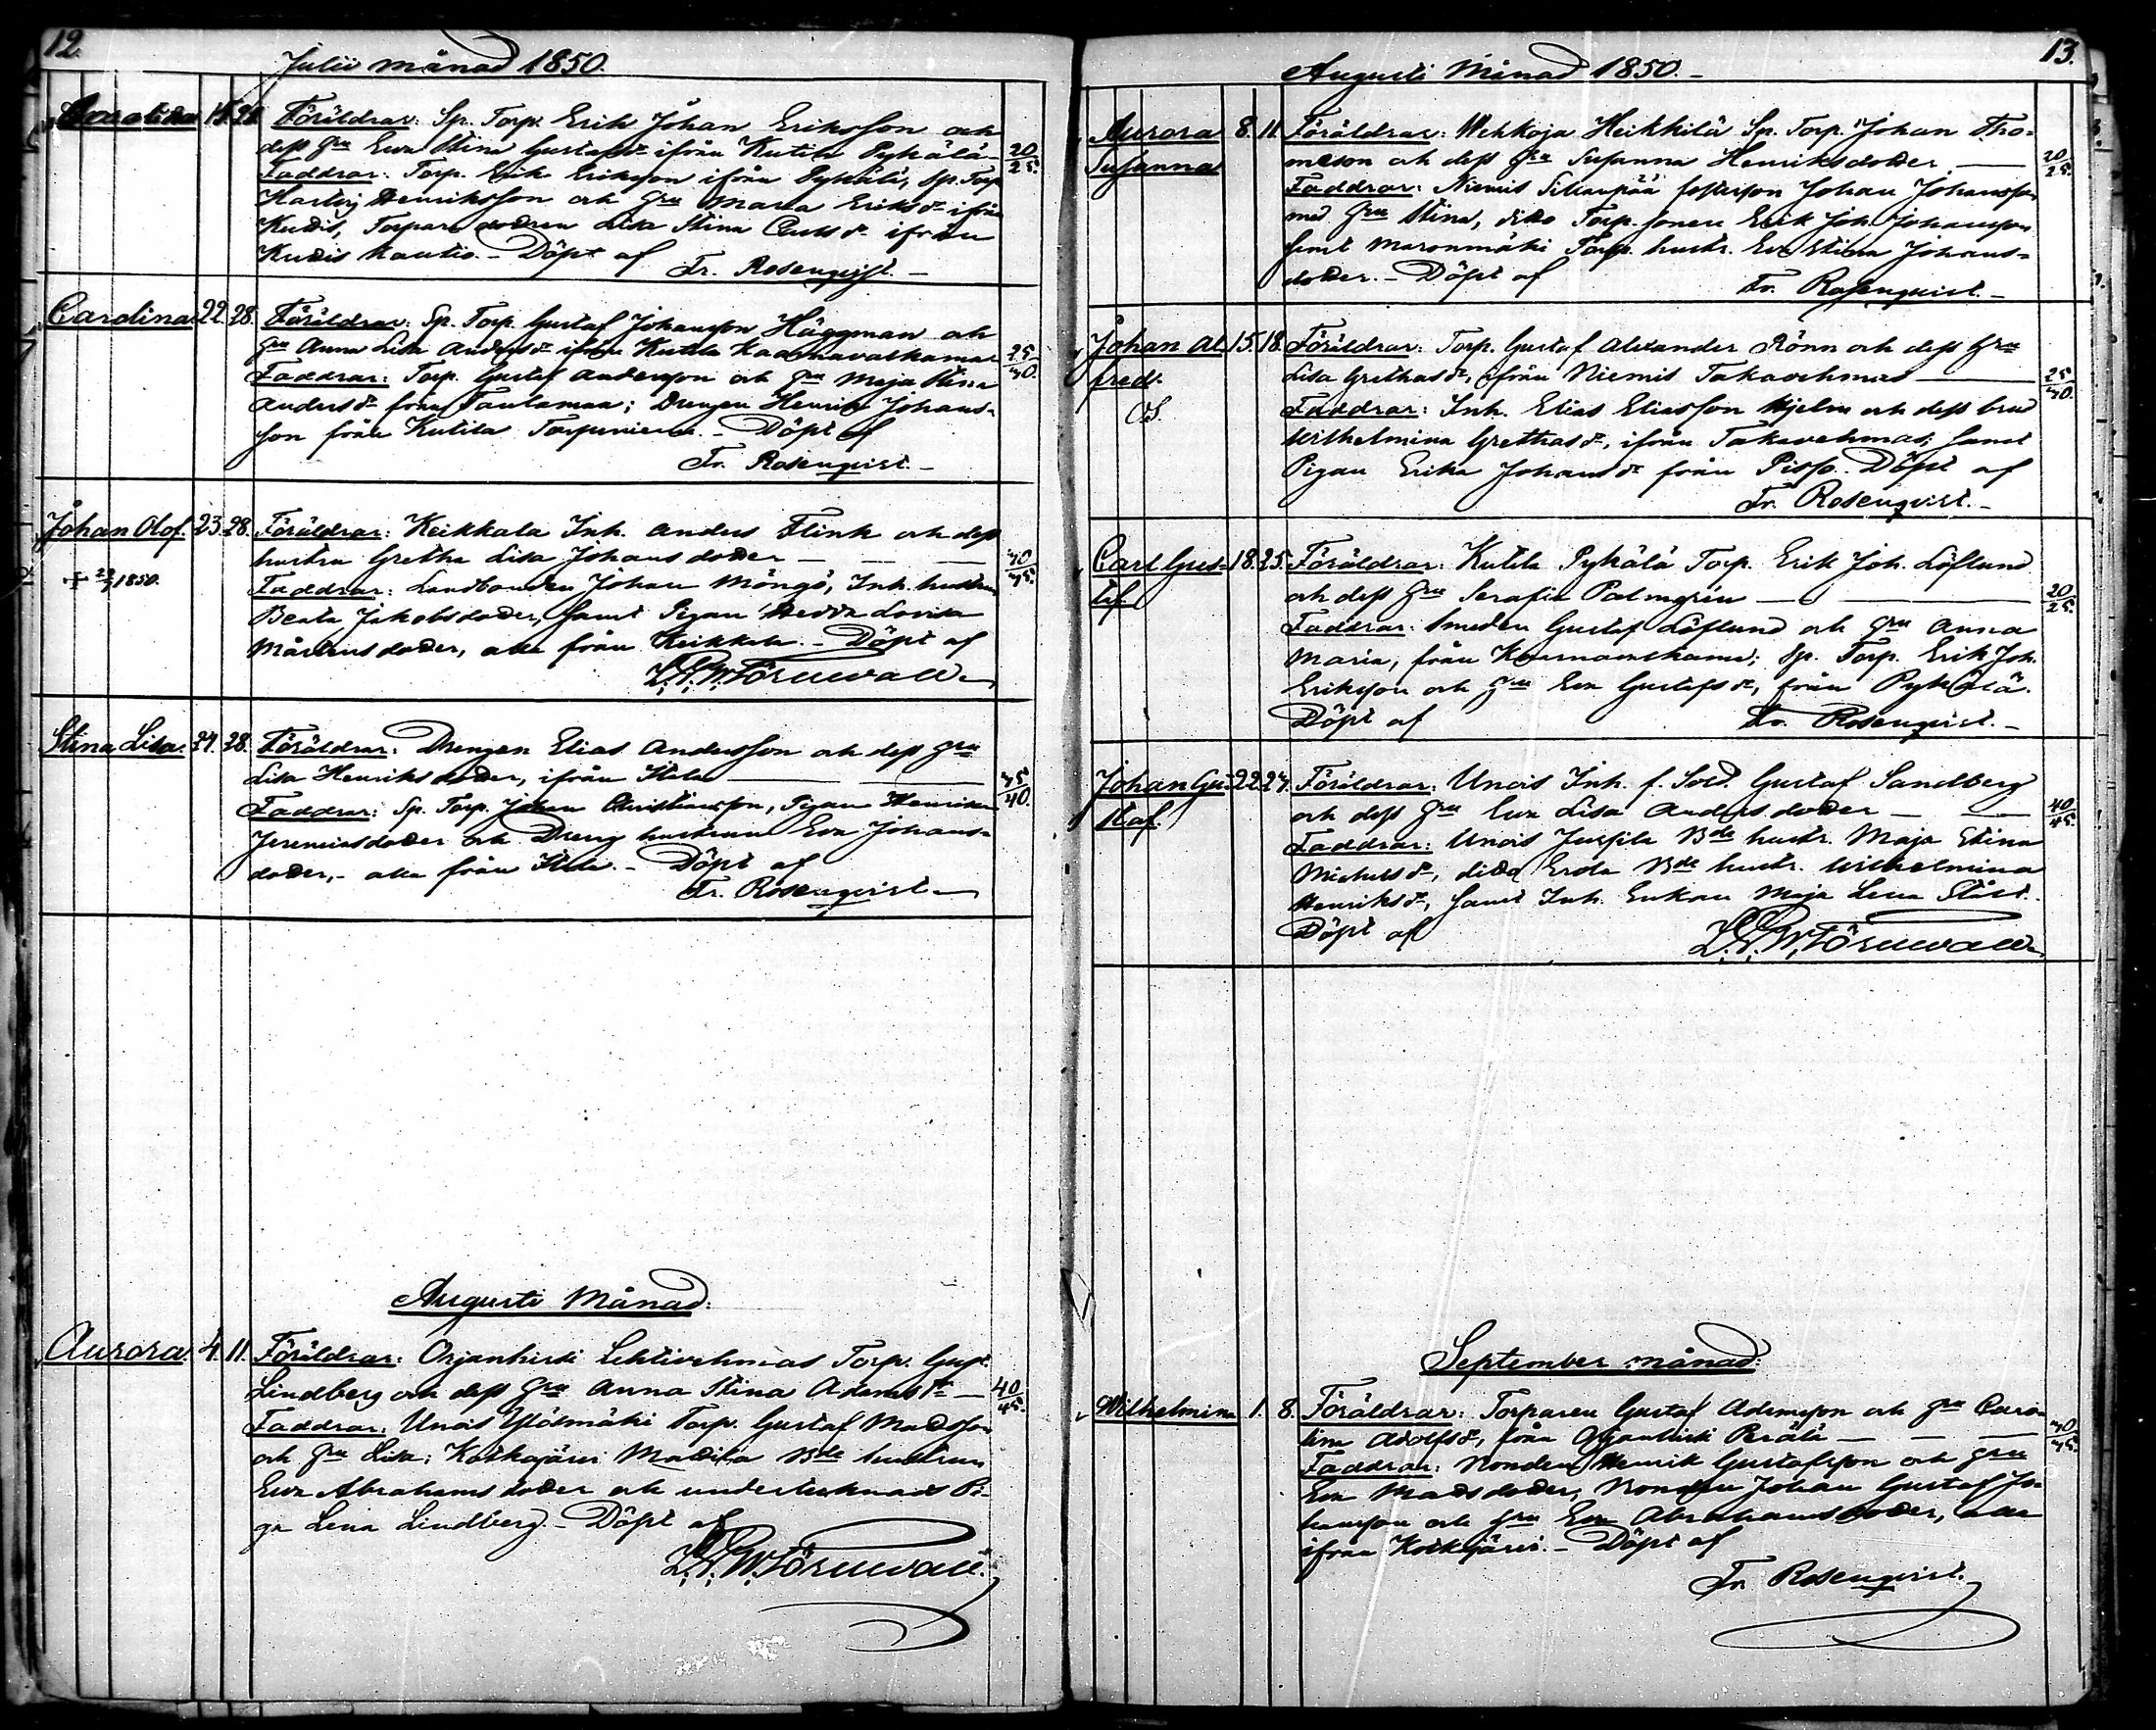 12.
Julii månad 1850.
Carolina 15. 21. Föräldrar: Sp. Torp. Erik Johan Eriksson och
dess hu Eva Stina Gustafsdr ifrån Kutila Pyhälä 20/25.
Faddrar: Torp. Erik Eriksson ifrån Pyhälä, Sp. Torp
Hartvig Henriksson och hu Maria Eriksdr ifrån
Kudis, Torpare dodren Lisa Stina Carlsdr ifrån
Kudis Kautio. – Döpt af Fr. Rosenqvist. –
Carolina. 22. 28. Föräldrar: Sp. Torp. Gustaf Johansson Häggman och
hu Anna Lisa Andersdr ifrån Kutila 25/30.
Faddrar: Torp. Gustaf Andersson och hu Maja Stina
Andersdr från Tantamaa; Drengen Henrik Johans-
son från Kutila. – Döpt af
Fr. Rosenqvist. –
Johan Olof. 23. 28. Föräldrar: Keikkala Inh. Anders Flink och dess
hustru Gretha Lisa Johansdotter – 30/35.
1850.
Faddrar: Landbonden Johan Möngö, Inh. hustrun
Beata Jakobsdotter, samt Pigan Hedda Lovisa
Mårtensdotter, alla från Keikkala. – Döpt af
Törnwall
Stina Lisa. 24. 28. Föräldrar: Drengen Elias Andersson och dess hu
Lisa Henriksdotter, ifrån Itala 35/40.
Faddrar: Sp. Torp. Johan Christiansson, Pigan Henrika
Jeremiasdotter och Dreng hustrun Eva Johans-
dotter, – alla från Itala. – Döpt af
Fr. Rosenqvist –
Augusti Månad.
Aurora. 4. 11. Föräldrar: Orjanhirsi Lehtivehmas Torp. Gust.
Lindberg och dess hu Anna Stina Adamsdr – 40/45.
Faddrar: Unois Torp. Gustaf Madsson
och hu Lisa; Kotkajärvi Mattila Bde hustrun
Eva Abrahamsdotter och undertecknads Pi-
ga Lena Lindberg. – Döpt af
Törnwall.
13.
Augusti Månad 1850. –
Aurora 8. 11. Föräldrar: Mehkoja Heikkilä Sp. Torp. Johan Tho-
Susanna
masson och dess hu Susanna Henriksdotter 20/25.
Faddrar: Niemis fosterson Johan Johansson
med hu Stina, dito Torp. sonen Erik Joh. Johansson
samt Maronmäki Torp. hustr. Eva Stina Johans-
dotter. – Döpt af Fr. Rosenqvist. –
Johan Al- 15. 18. Föräldrar: Torp. Gustaf Alexander Rönn och dess hu
fred.
Lisa Grethasdr, ifrån Niemis Takavehmas 25/30.
Faddrar: Inh. Elias Eliasson Hjelm och dess brud
Wilhelmina Grethasdr, ifrån Takavehmas; samt
Pigan Erika Johansdr från Pispa. Döpt af
Fr. Rosenqvist. –
Carl Gus- 18. 25. Föräldrar: Kutila Pyhälä Torp. Erik Joh. Löflund
taf
och dess hu Serafia Palmgrén 20/25.
Faddrar: Smeden Gustaf Löflund och hu Anna
Maria, från; Sp. Torp. Erik Joh.
Eriksson och hu Eva Gustafsdr, från Pyhälä.
Döpt af Fr. Rosenqvist. –
Johan Gu- 22. 27. Föräldrar: Unois Inh. f. Sold. Gustaf Sandberg
staf.
och dess hu Eva Lisa Andersdotter – 40/45.
Faddrar: Unois Jussila Bde hustr. Maja Stina
Michelsdr, ditto Erola Bde hustr. Wilhelmina
Henriksdr, samt Inh. Enkan Maja Lena Stålt.
Döpt af Törnwall
September månad.
Wilhelmina 1. 8. Föräldrar: Torparen Gustaf Adamsson och hu Caro-
lina Adolfsdr, från Orjanhirsi Perälä – 30/35.
Faddrar: Bonden Henrik Gustafsson och hu
Eva Madsdotter, Bonden Johan Gustaf Jo-
hansson och hu Eva Abrahamsdotter, alla
ifrån Kotkajärvi. – Döpt af
Fr. Rosenqvist.